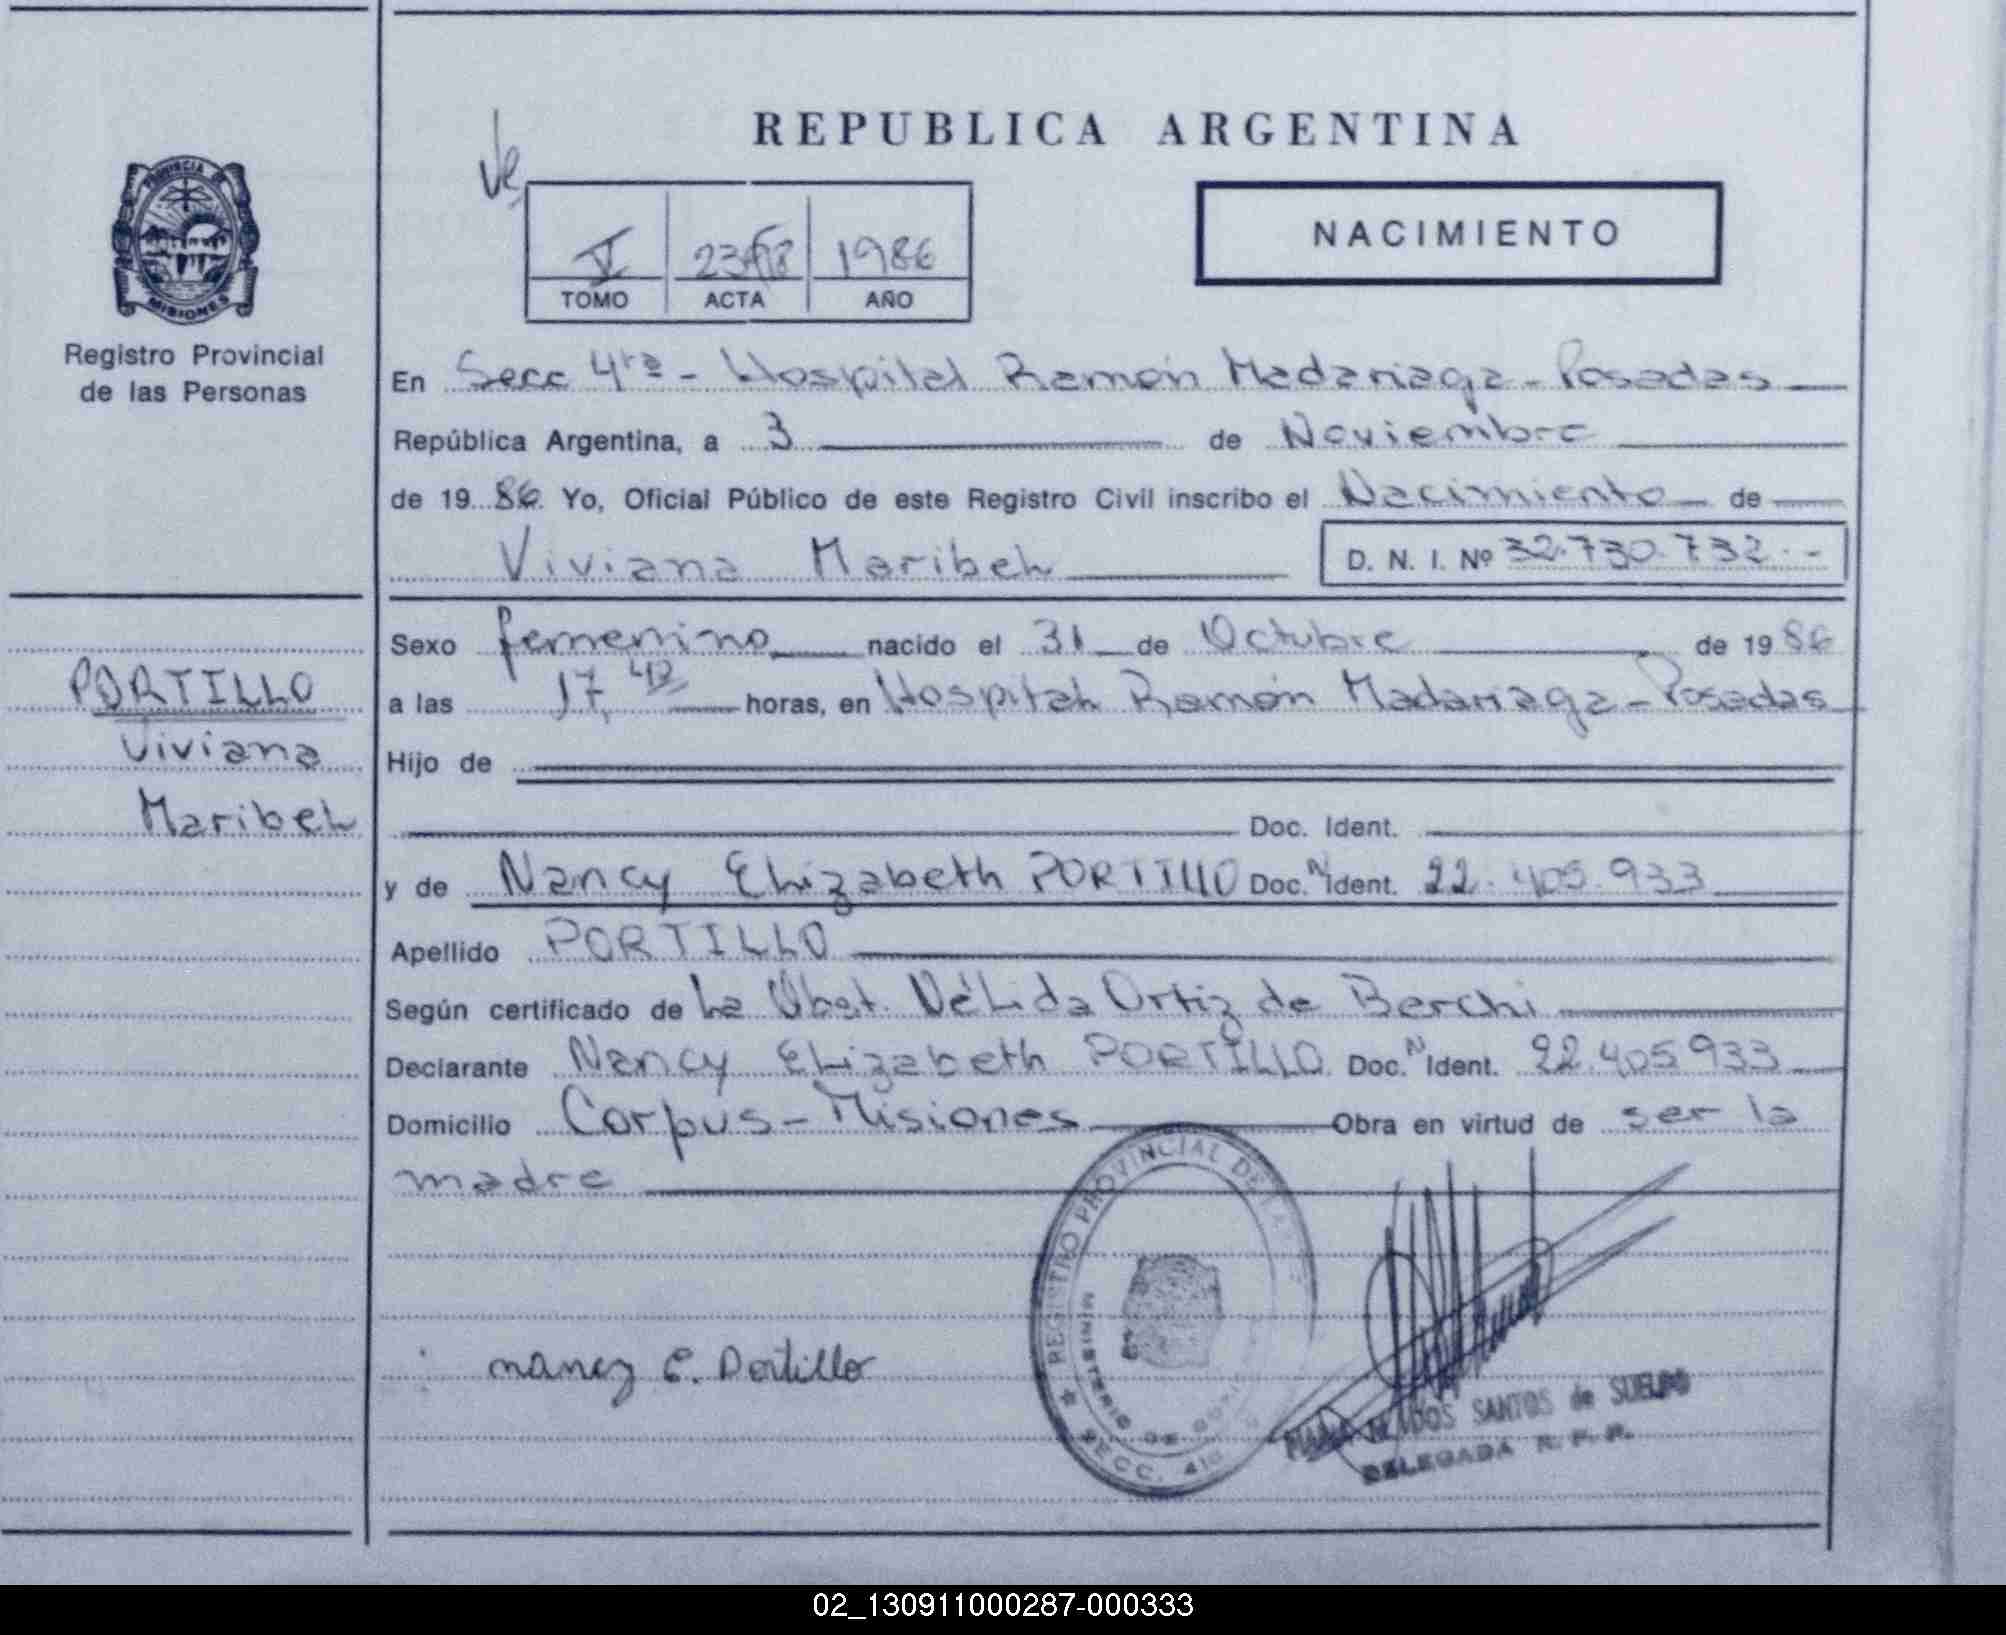 REPUBLICA ARGENTINA
PROVINCIA DE
MISIONES
Registro Provincial
de las Personas
V
1986
TOMO ACTA AÑO
NACIMIENTO
En Secc 4ta - Hospital Ramón Madariaga - Posadas
República Argentina, a 3 de Noviembre
de 19 86 Yo, Oficial Público de este Registro Civil inscribo el Nacimiento de
Viviana Maribel D. N. I. Nº 32.730.732.-
Sexo femenino nacido el 31 de Octubre de 19 86
a las 17, horas, en Hospital Ramón Madariaga - Posadas
Hijo de
Doc. Ident.
y de Nancy Elizabeth PORTILLO Doc. N Ident. 22.405.933
Apellido PORTILLO
Según certificado de la Obst. Nélida Ortiz de Berchi
Declarante Nancy Elizabeth PORTILLO Doc. N Ident. 22.405.933
Domicilio Corpus - Misiones Obra en virtud de ser la
madre
PORTILLO
Viviana
Maribel
Nancy E. Portillo
REGISTRO PROVINCIAL DE LA
MINISTERIO DE
SECC. 4
SANTOS de SUELDO
DELEGADA R. P. P.
02_130911000287-000333